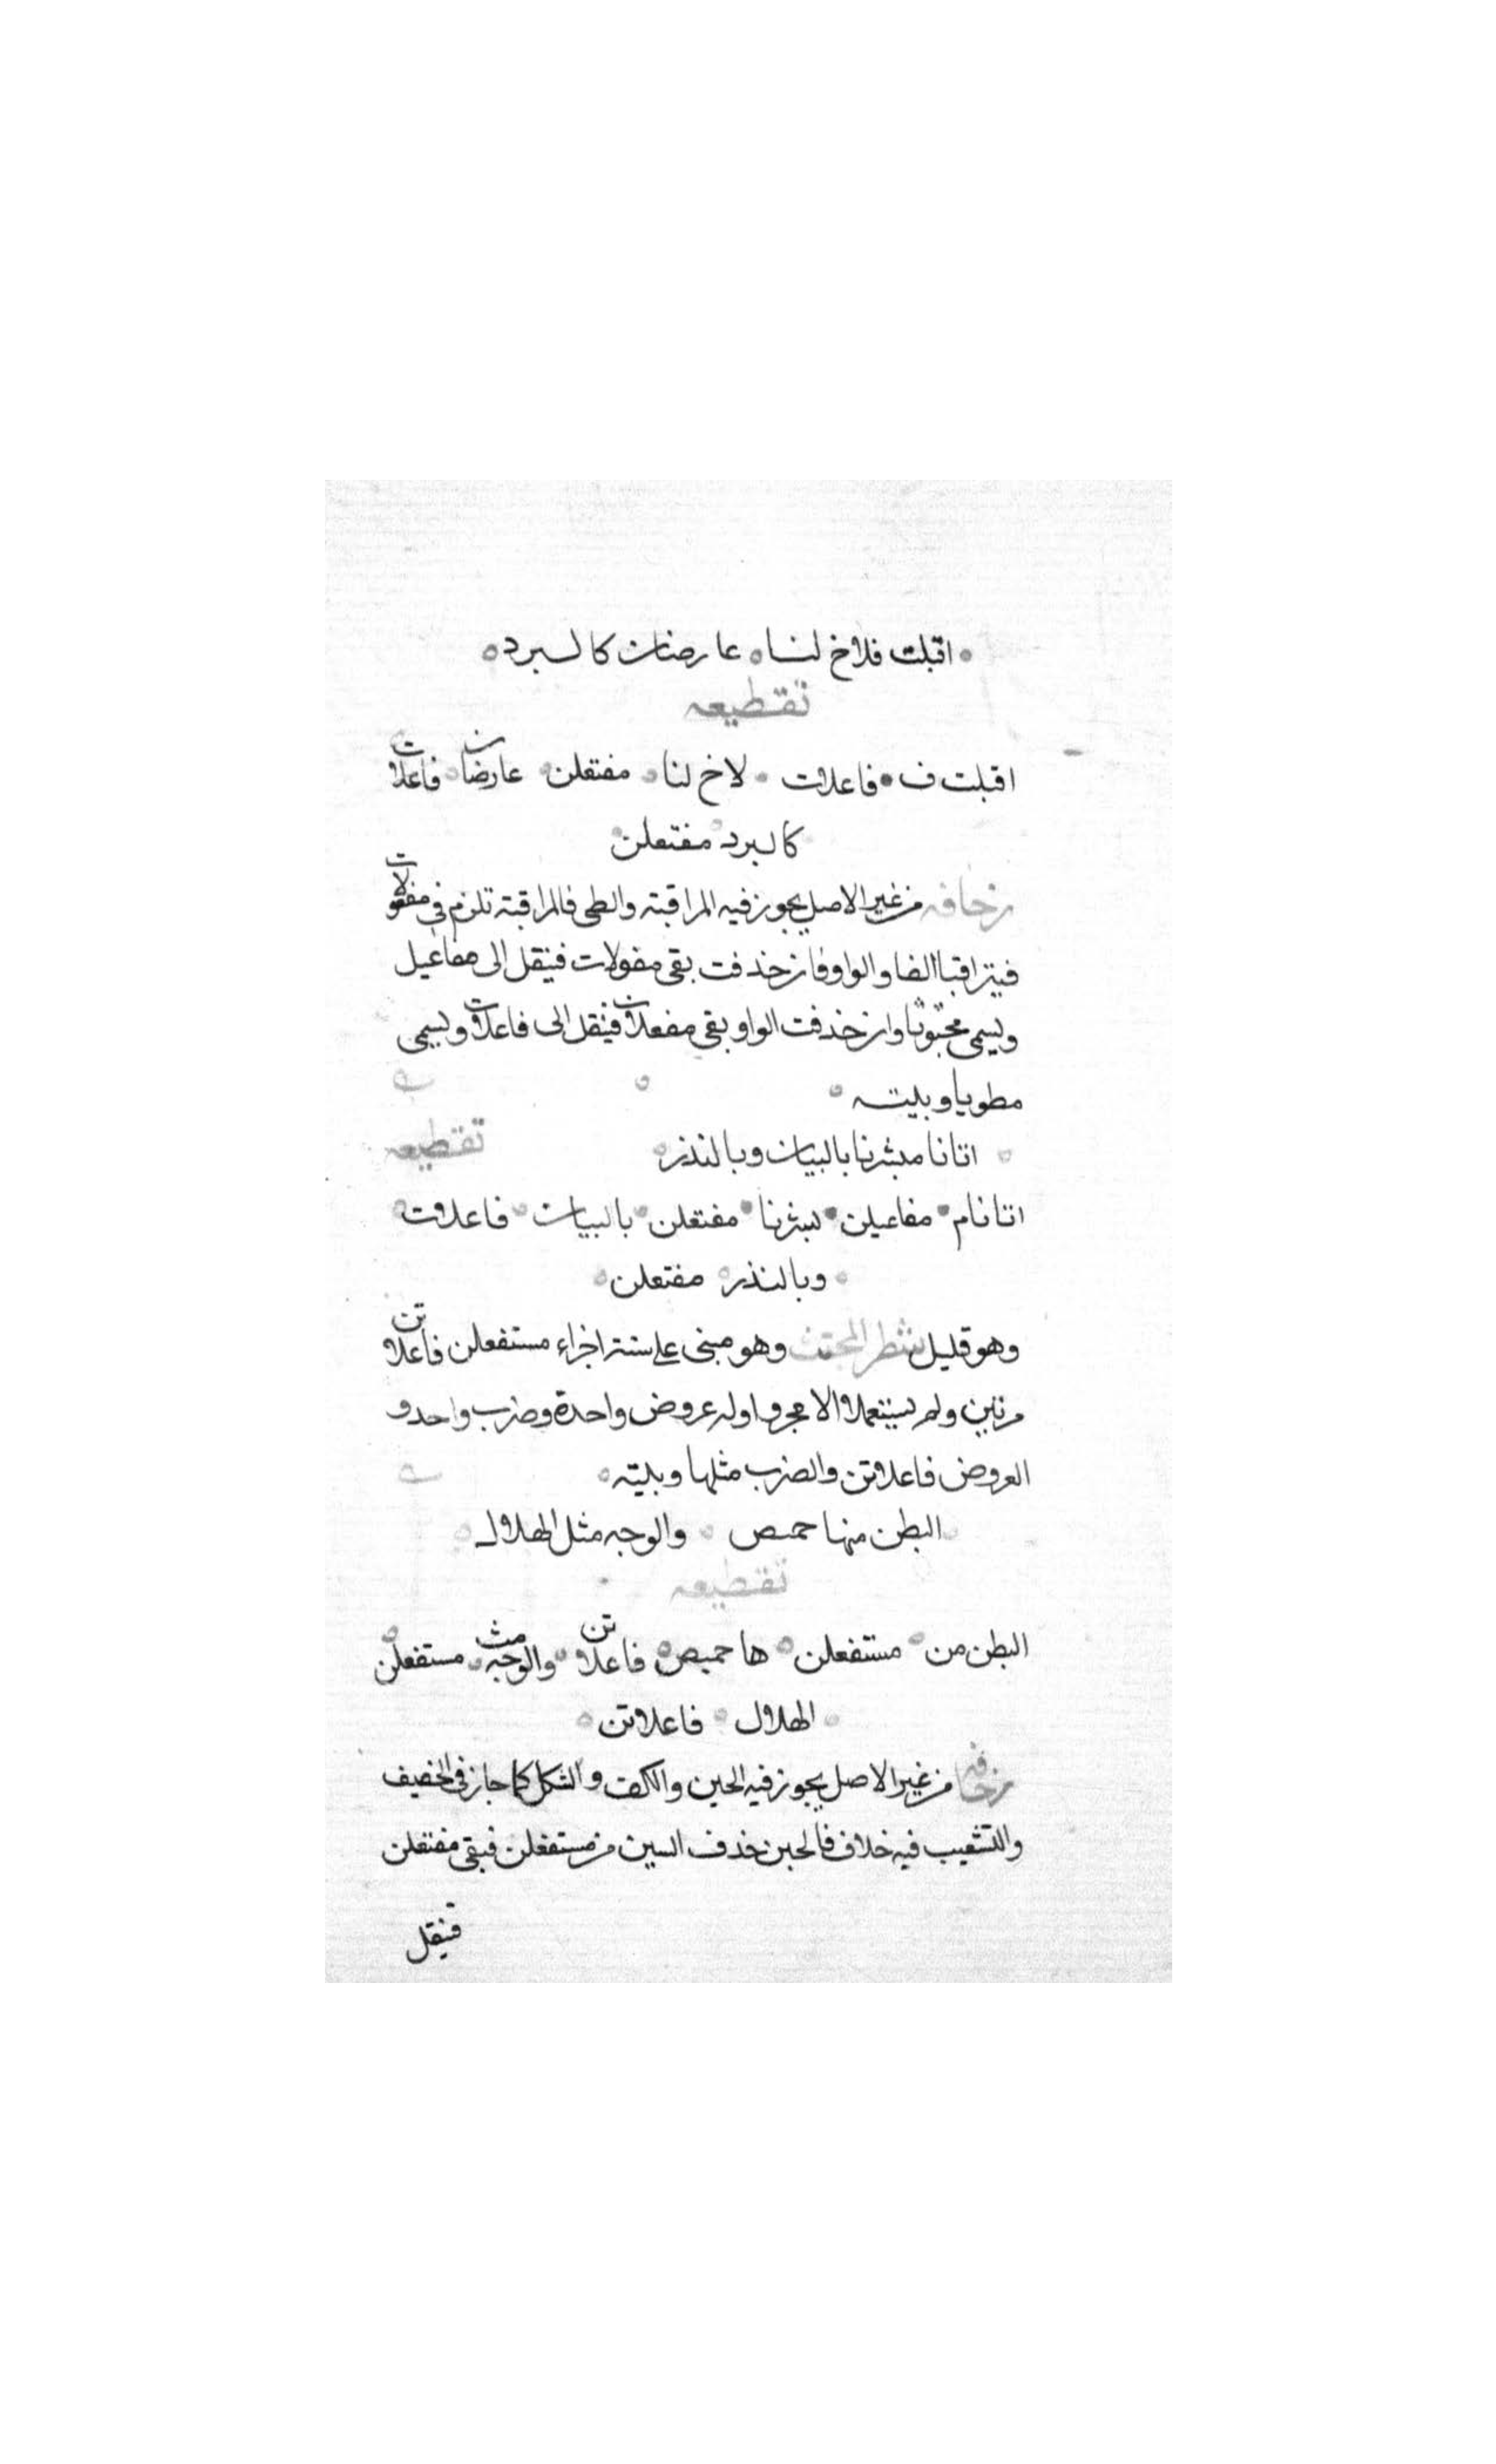 اقبلت فلاخ لنا ه عارضات كالبرد ه
تقطيعه
اقبلت ف فاعلات لاخ لنا مفتعلن عارضات فاعلات
كالبرد مفتعلن
زحافه من غير الاصل يجوز فيه المراقبة والطى فالمراقبة تلزم في مفعولات
فيتراقبا الفا والواو فان خذفت بقى مفولات فينقل الى مفاعيل
ويسمى مخبونا وان خذفت الواو بقى مفعلات فينقل الى فاعلات ويسمى
مطويا وبيته
اتانا مبشرنا بالبيان وبالنذر تقطيعه
اتانام مفاعيلن بشرنا مفتعلن بالبيان فاعلات
وبالنذر مفتعلن
وهو قليل شطر المجتث وهو مبنى على ستة اجزاء مستفعلن فاعلاتن
مرتين ولم يستعملا الا مجزوا وله عروض واحدة وضرب واحد و
العروض فاعلاتن والضرب مثلها وبيته
البطن منها خميص والوجه مثل الهلال
تقطيعه
البطن من مستفعلن ها خميص فاعلاتن والوجه مث مستفعلن
الهلال فاعلاتن
زحافه من غير الاصل يجوز فيه الخبن والكف والشكل كما جاز في الخفيف
والتشعيب فيه خلاف فالخبن خذف السين من مستفعلن فبقى مفتعلن
فينقل